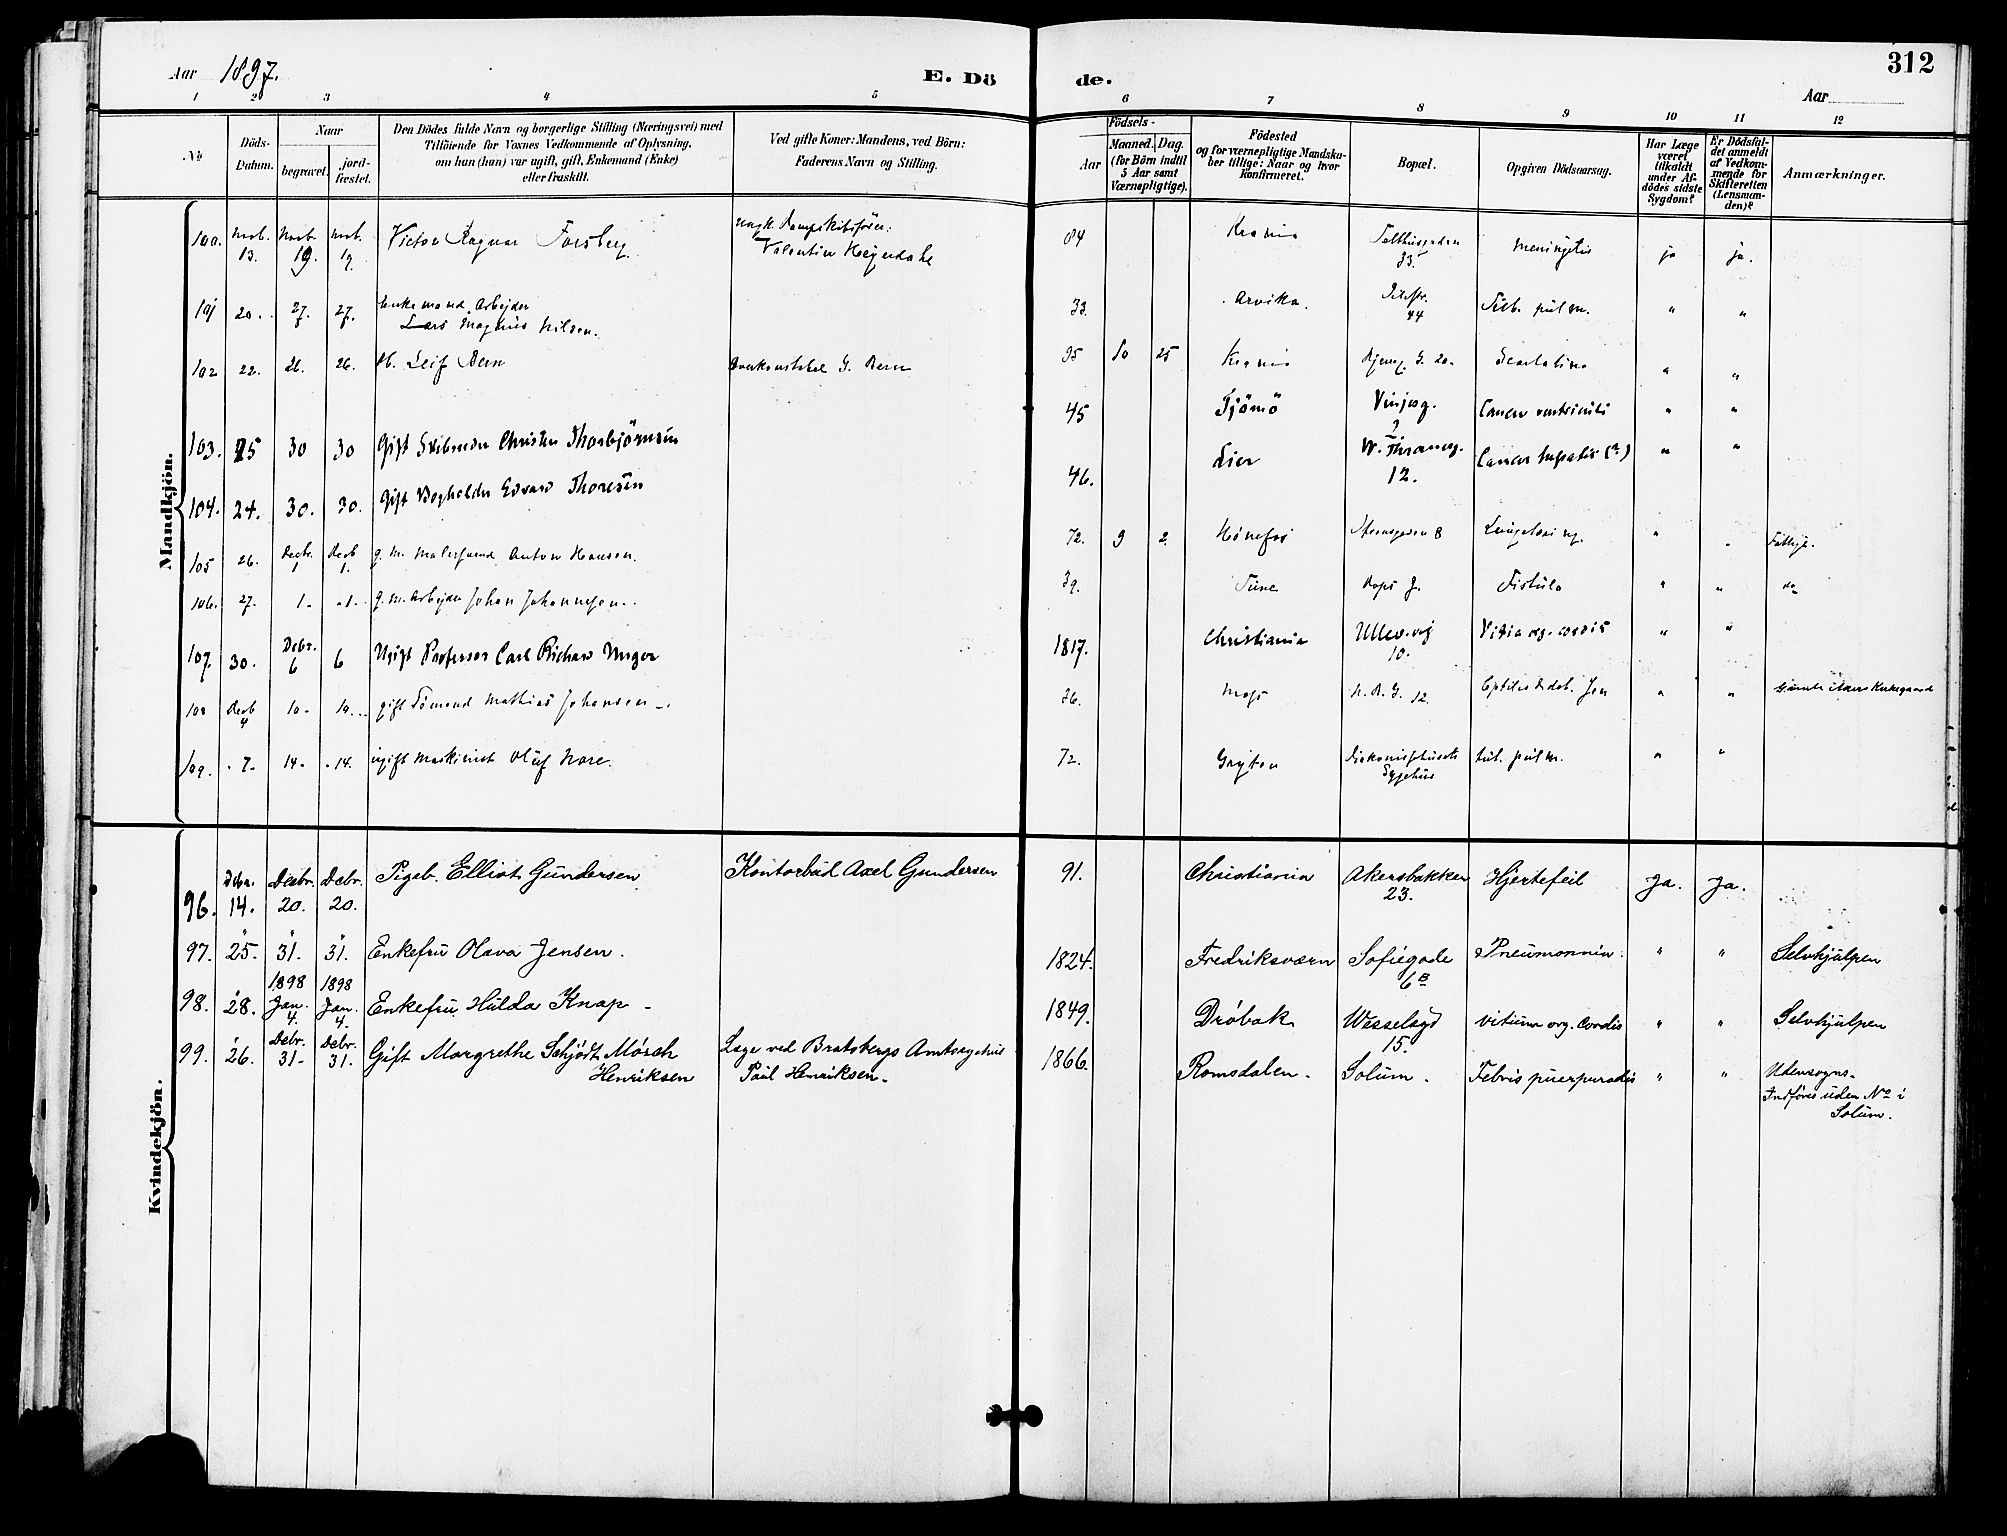 Aar 1897.
E. Dö de.
312
Aar
1 2 3 4 5 6 7 8 9 10 11 12
No
Döds-Datum.
Naar
begravet.
jord-fæstet.
Den Dödes fulde Navn og borgerlige Stilling (Næringsvei) med
Tilföiende for Voxnes Vedkommende af Oplysning,
om han (hun) var ugift, gift, Enkemand (Enke)
eller fraskilt.
Ved gifte Koner: Mandens, ved Börn:
Faderens Navn og Stilling.
Födsels-
Aar
Maaned. Dag.
(for Börn indtil
5 Aar samt
Værnepligtige).
Födested
og for værnepligtige Mandska-
ber tillige: Naar og hvor
konfirmeret.
Bopæl.
Opgiven Dödsaarsag.
Har Læge
været
tilkaldt
under Af-
dödes sidste
Sygdom?
Er Dödsfal-
det anmeldt
af Vedkom-
mende for
Skifteretten
(Lensman-
den)?
Anmærkninger.
Mandkjön.
100. Novb. 13. Novb. 19. Novb. 19. Victor Ragnar Forsberg Valentin Heyerdahl 84 Krania 33. Meningitis ja ja.
101 20. 27. 27. Enkemand Arbejder Lars Magnus Nilsen. 33. Arvika. 44 Tub. pulm. " "
102 22. 26. 26. Leif Bern Overkonstabel G. Bern 95 10 25 Krania 20. Scarlatina " "
103. 25 30 30 Gift Skibsreder Christen Thorbjörnsen 45 Tjömö Vinjesg. Cancer ventriculi " "
104. 24. 30. 30. Gift Bogholder Edvard Thoresen 46. Lier W. Thranesg. 12. Cancer hepatis (?) " "
105 26. Decbr. 1 Decb 1. g. m. Malersvend Anton Hansen. 72. 9 2. Hönefos Steensgaden 8 " " Fattigv.
106. 27. 1. 1. g. m. Arbejder Johan Johannesen. 39. Tune Fistula " " do
107 30. Decbr. 6 6 Ugift Professor Carl Richard Unger 1817. Christiania Ullev. vej 10. Vitia org. cordis " "
108 Decb 4 10. 10. gift Tömmand Mathias Johansen 36. Moss 12. " "
109. 7. 14. 14. ugift Maskinist Oluf Nore. 72. Diakonissehusets Sygehus tub. pulm. " "
Kvindekjön.
96. Dcbr. 14. Decbr. 20. Dcbr. 20. Pigeb. Elliot Gundersen Kontorbud Axel Gundersen 91. Christiania Akersbakken 23. Hjertefeil Ja. Ja.
97. " 25. " 31. " 31. Enkefru Olava Jensen. 1824. Fredriksværn Sofiegade 6B Pneumonnia " " Selvhjælpen
98. " 28. 1898 Jan. 4. 1898 Jan. 4. Enkefru Hulda Knap 1849. Dröbak Wesselsgd 15. Vitium org. Cordis " " Selvhjælpen
99. " 26. Dcbr. 31. Dcbr. 31. Gift Margrethe Schjödt Mörch Henriksen Læge ved Bratsbergs Amtssygehus Paul Henriksen. 1866. Romsdalen. Solum. Febris puerperalis " " Udensogns. Indföres uden No i Solum.